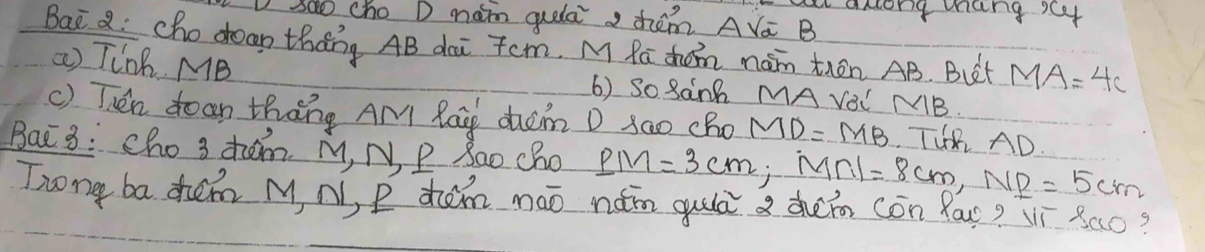 D sao cho D nằm giữa 2 điểm A và B
đường thẳng xy
Bài 2: Cho đoạn thẳng AB dài 7cm. M là điểm nằm trên AB. Biết MA = 4c
a) Tính MB b) So sánh MA với MB.
c) Trên đoạn thẳng AM lấy điểm D sao cho MD = MB. Tính AD.
Bài 3: Cho 3 điểm M, N, P sao cho PM = 3cm; MN = 8cm, NP = 5cm
Trong ba điểm M, N, P điểm nào nằm giữa 2 điểm còn lại? Vì sao?